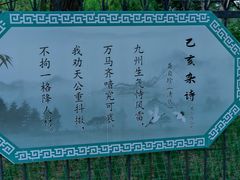 乙亥杂诗
龚自珍（清代）
九州生气恃风雷，
万马齐喑究可哀。
我劝天公重抖擞，
不拘一格降人才。